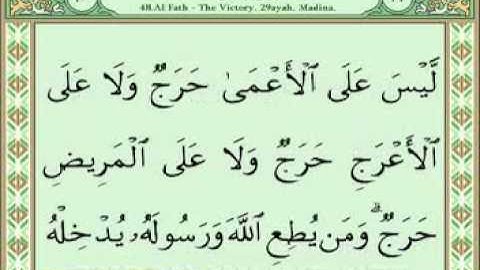 48.Al Fath - The Victory. 29ayah. Madina.
لَّيْسَ عَلَى ٱلْأَعْمَىٰ حَرَجٌ وَلَا عَلَى
ٱلْأَعْرَجِ حَرَجٌ وَلَا عَلَى ٱلْمَرِيضِ
حَرَجٌ ۗ وَمَن يُطِعِ ٱللَّهَ وَرَسُولَهُۥ يُدْخِلْهُ